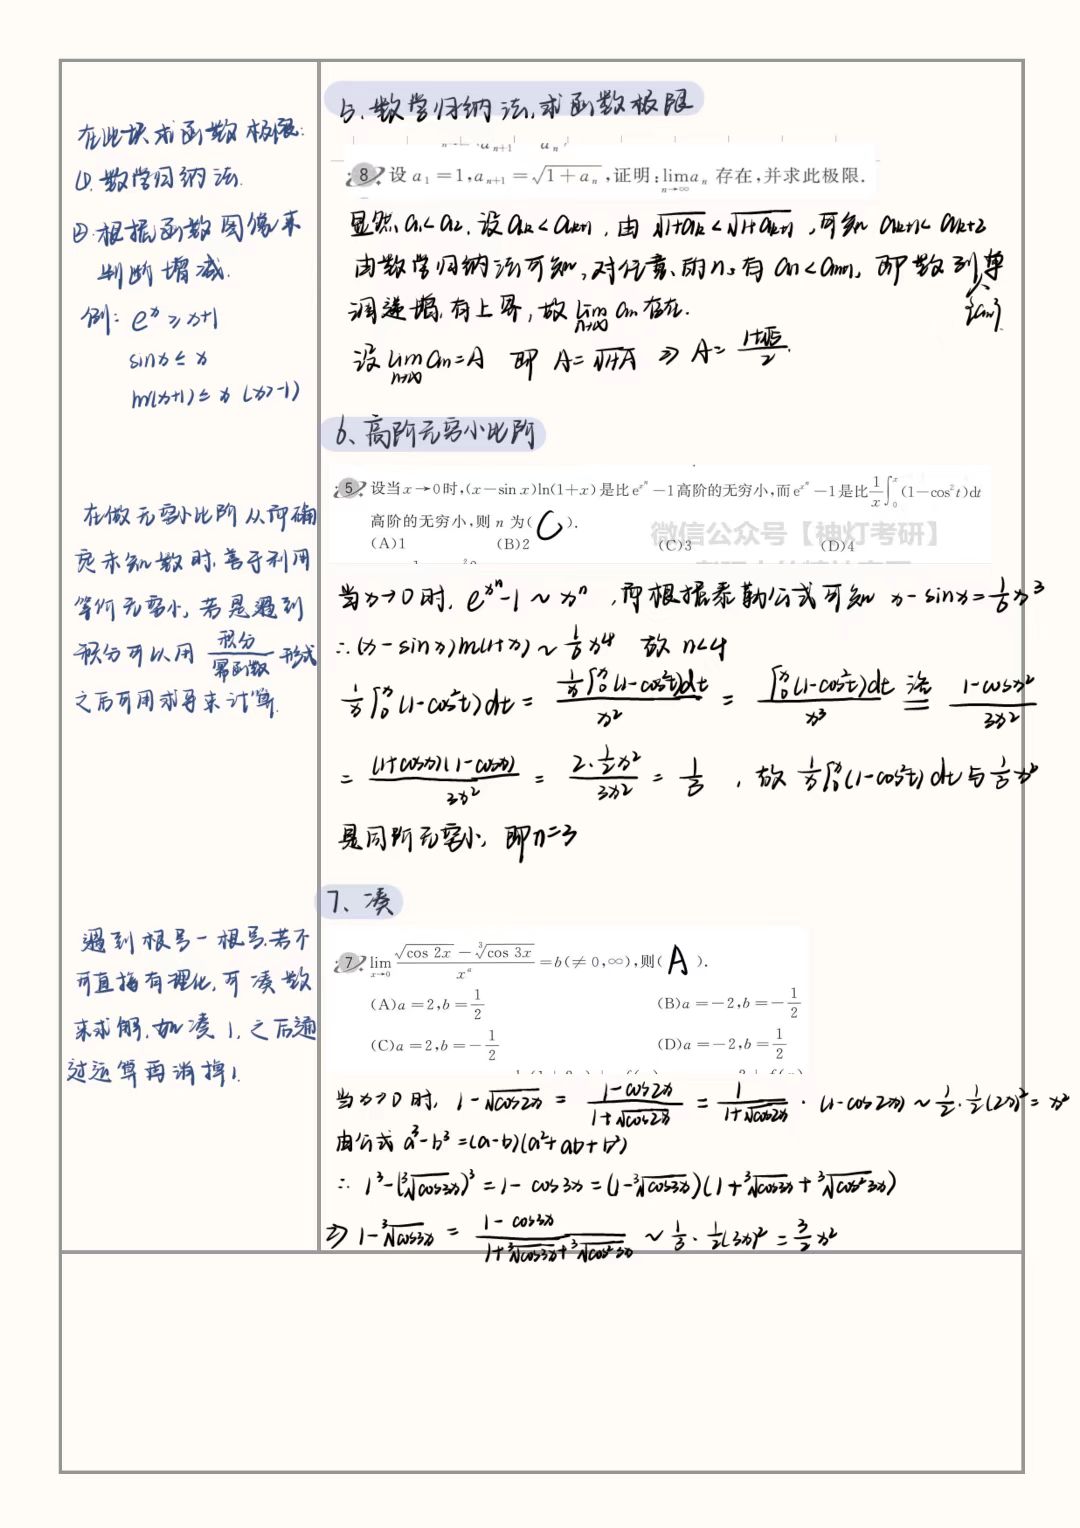 在此块求函数极限:
①.数学归纳法.
②.根据函数图像来
判断增减.
例: eˣ ≥ x+1
sinx ≤ x
ln(x+1) ≤ x (x>-1)
在做无穷小比阶从而确
定未知数时.善于利用
等价无穷小,若是遇到
积分可以用 积分/幂函数 形式
之后可用求导来计算.
遇到根号一根号.若不
可直接有理化,可凑数
来求解.如凑1,之后通
过运算再消掉1.
5.数学归纳法,求函数极限
8 设 a₁=1,aₙ₊₁=√(1+aₙ),证明:lim(n→∞) aₙ 存在,并求此极限.
显然 a₁<a₂. 设 aₖ<aₖ₊₁, 由 √(1+aₖ)<√(1+aₖ₊₁), 可知 aₖ₊₁<aₖ₊₂
由数学归纳法可知,对任意的n,有 aₙ<aₙ₊₁, 即数列{aₙ}单
调递增,有上界,故 lim(n→∞) aₙ 存在.
设 lim(n→∞) aₙ=A 即 A=√(1+A) ⇒ A=(1+√5)/2.
6、高阶无穷小比阶
5 设当x→0时,(x-sin x)ln(1+x)是比e^(xⁿ)-1高阶的无穷小,而e^(xⁿ)-1是比1/x ∫₀ˣ(1-cos²t)dt
高阶的无穷小,则 n 为( C ).
(A)1 (B)2 (C)3 (D)4
微信公众号【神灯考研】
当x→0时, e^(xⁿ)-1 ~ xⁿ ,而根据泰勒公式可知 x-sinx=1/6 x³
∴(x-sinx)ln(1+x) ~ 1/6 x⁴ 故 n<4
1/x ∫₀ˣ(1-cos²t)dt = (1/x ∫₀ˣ(1-cos²t)dt)/x² = (∫₀ˣ(1-cos²t)dt)/x³ 洛= (1-cosx²)/3x²
= (1+cosx)(1-cosx)/3x² = (2·1/2x²)/3x² = 1/3 ,故 1/x ∫₀ˣ(1-cos²t)dt 与 1/3 x²
是同阶无穷小, 即n=3
7、凑
7 lim(x→0) (√(cos 2x) - ³√(cos 3x))/xᵃ = b(≠0,∞),则( A ).
(A)a=2,b=1/2 (B)a=-2,b=-1/2
(C)a=2,b=-1/2 (D)a=-2,b=1/2
当x→0时, 1-√cos2x = (1-cos2x)/(1+√cos2x) = 1/(1+√cos2x) · (1-cos2x) ~ 1/2·1/2(2x)² = x²
由公式 a³-b³=(a-b)(a²+ab+b²)
∴ 1³-(³√cos3x)³ = 1-cos3x = (1-³√cos3x)(1+³√cos3x+³√cos²3x)
⇒ 1-³√cos3x = (1-cos3x)/(1+³√cos3x+³√cos²3x) ~ 1/3·1/2(3x)² = 3/2 x²